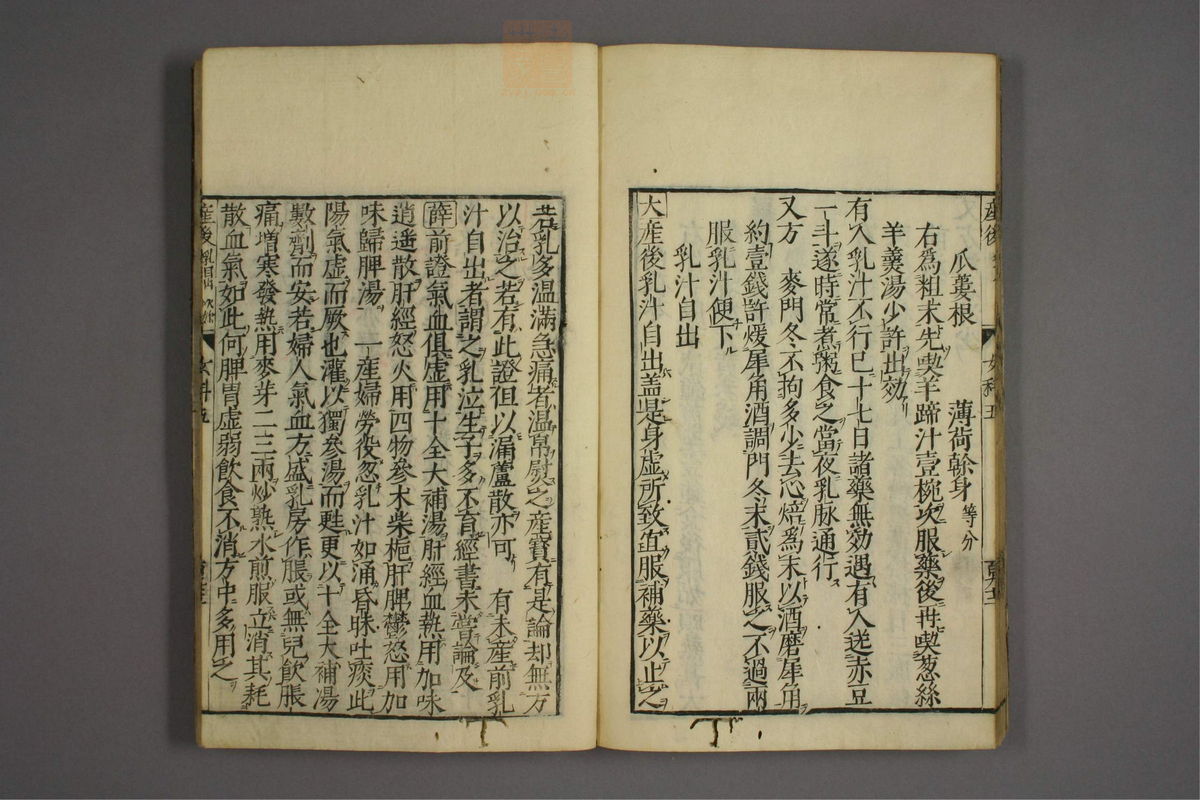 瓜蔞根　薄荷幹身等分
右爲粗末先喫羊蹄汁壹椀次服藥後再喫葱絲
羊羹湯少許出効
有人乳汁不行巳十七日諸藥無効遇有人送赤豆
一斗遂時常煮粥食之當夜乳脉通行
又方　麥門冬不拘多少去心焙爲末以酒磨犀角
約壹錢許煖犀角酒調門冬末貳錢服之不過兩
服乳汁便下
乳汁自出
大産後乳汁自出盖是身虚所致宜服補藥以止之
若乳多温滿急痛者温帛熨之産寳有是論却無方
以治之若有此證但以漏蘆散亦可　有未産前乳
汁自出者謂之乳泣生子多不育經書未嘗論及
薛前證氣血俱虚用十全大補湯肝經血熱用加味
逍遥散肝經怒火用四物參术柴梔肝脾鬱怒用加
味歸脾湯　一産婦勞役忽乳汁如涌昏昧吐痰此
陽氣虚而厥也灌以獨參湯而甦更以十全大補湯
數劑而安若婦人氣血方盛乳房作脹或無兒飲脹
痛増寒發熱用麥芽二三兩炒熟水煎服立消其耗
散血氣如此何脾胃虚弱飲食不消方中多用之
産後　女科五